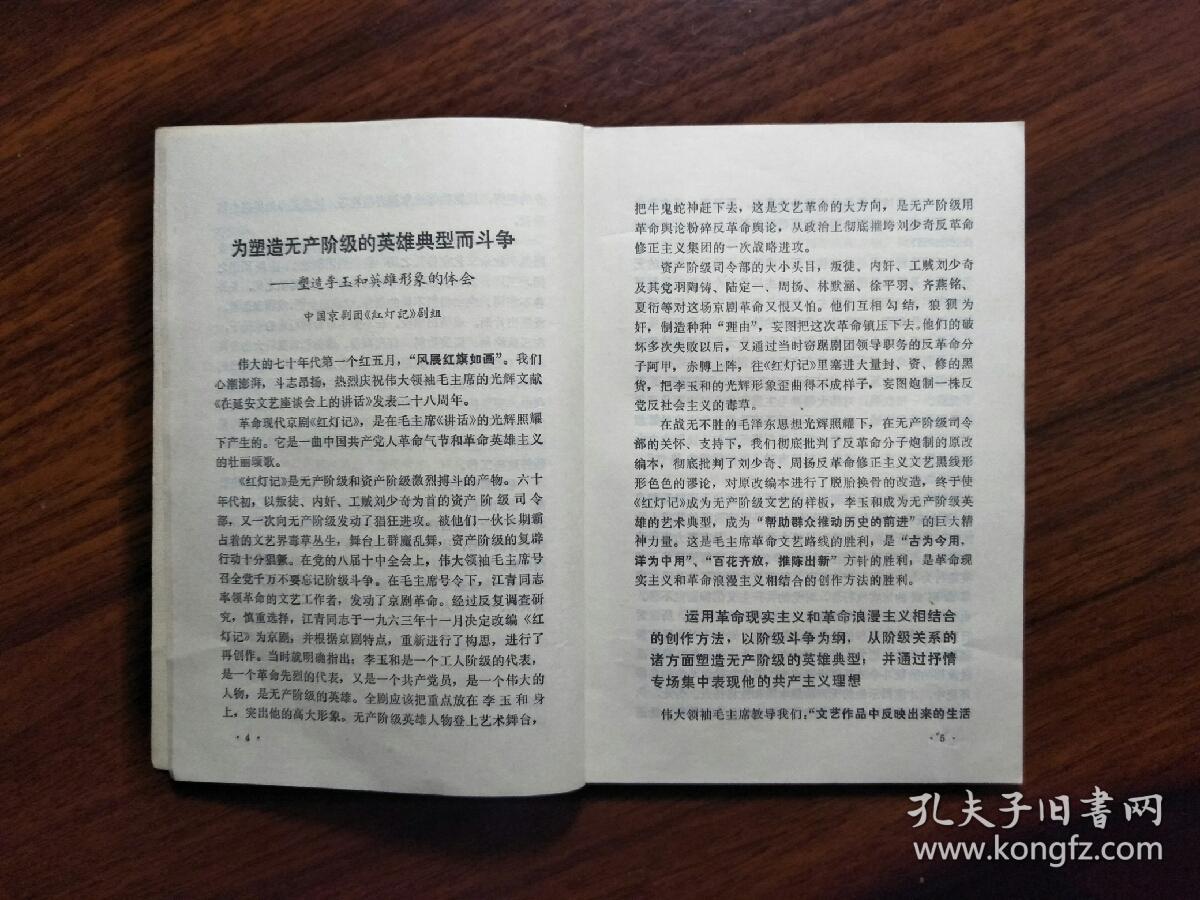 为塑造无产阶级的英雄典型而斗争
——塑造李玉和英雄形象的体会
中国京剧团《紅灯記》剧组
伟大的七十年代第一个红五月，“风展红旗如画”。我们
心潮澎湃，斗志昂扬，热烈庆祝伟大领袖毛主席的光辉文献
《在延安文艺座谈会上的讲话》发表二十八周年。
革命现代京剧《红灯记》，是在毛主席《讲话》的光辉照耀
下产生的。它是一曲中国共产党人革命气节和革命英雄主义
的壮丽颂歌。
《红灯记》是无产阶级和资产阶级激烈搏斗的产物。六十
年代初，以叛徒、内奸、工贼刘少奇为首的资产阶级司令
部，又一次向无产阶级发动了猖狂进攻。被他们一伙长期霸
占着的文艺界毒草丛生，舞台上群魔乱舞，资产阶级的复辟
行动十分猖獗。在党的八届十中全会上，伟大领袖毛主席号
召全党千万不要忘记阶级斗争。在毛主席号令下，江青同志
率领革命的文艺工作者，发动了京剧革命。经过反复调查研
究，慎重选择，江青同志于一九六三年十一月决定改编《红
灯记》为京剧，并根据京剧特点，重新进行了构思，进行了
再创作。当时就明确指出：李玉和是一个工人阶级的代表，
是一个革命先烈的代表，又是一个共产党员，是一个伟大的
人物，是无产阶级的英雄。全剧应该把重点放在李玉和身
上，突出他的高大形象。无产阶级英雄人物登上艺术舞台，
·4·
把牛鬼蛇神赶下去，这是文艺革命的大方向，是无产阶级用
革命舆论粉碎反革命舆论，从政治上彻底摧垮刘少奇反革命
修正主义集团的一次战略进攻。
资产阶级司令部的大小头目，叛徒、内奸、工贼刘少奇
及其党羽陶铸、陆定一、周扬、林默涵、徐平羽、齐燕铭、
夏衍等对这场京剧革命又恨又怕。他们互相勾结，狼狈为
奸，制造种种“理由”，妄图把这次革命镇压下去。他们的破
坏多次失败以后，又通过当时窃踞剧团领导职务的反革命分
子阿甲，赤膊上阵，往《红灯记》里塞进大量封、资、修的黑
货，把李玉和的光辉形象歪曲得不成样子，妄图炮制一株反
党反社会主义的毒草。
在战无不胜的毛泽东思想光辉照耀下，在无产阶级司令
部的关怀、支持下，我们彻底批判了反革命分子炮制的原改
编本，彻底批判了刘少奇、周扬反革命修正主义文艺黑线形
形色色的谬论，对原改编本进行了脱胎换骨的改造，终于使
《红灯记》成为无产阶级文艺的样板，李玉和成为无产阶级英
雄的艺术典型，成为“帮助群众推动历史的前进”的巨大精
神力量。这是毛主席革命文艺路线的胜利，是“古为今用，
洋为中用”、“百花齐放，推陈出新”方针的胜利，是革命现
实主义和革命浪漫主义相结合的创作方法的胜利。
运用革命现实主义和革命浪漫主义相结合
的创作方法，以阶级斗争为纲，从阶级关系的
诸方面塑造无产阶级的英雄典型；并通过抒情
专场集中表现他的共产主义理想
伟大领袖毛主席教导我们：“文艺作品中反映出来的生活
·5·
孔夫子旧書网
www.kongfz.com